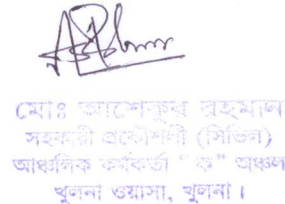 মোঃ আশেকুর রহমান
সহকারী প্রকৌশলী (সিভিল)
আঞ্চলিক কর্মকর্তা " ক" অঞ্চল
খুলনা ওয়াসা, খুলনা।